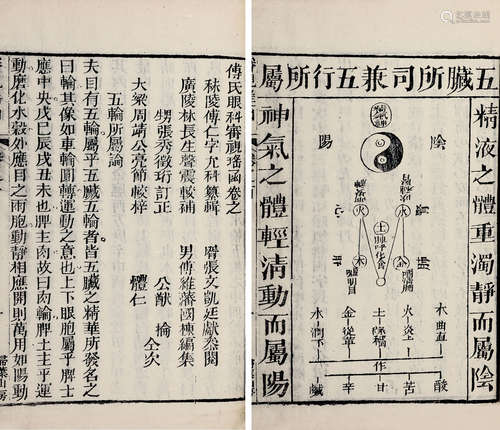 五臟所司兼五行所屬
精液之體重濁靜而屬陰
神氣之體輕清動而屬陽
陰
陽
火
水
土
金
木
木曲直
火炎上
土稼穡
金從革
水潤下
作
酸
苦
甘
辛
鹹
傅氏眼科審視瑤函卷之
秣陵傅仁宇允科纂輯
廣陵林長生聲震較補
甥張秀徵珩訂正
大梁周靖公亮節較梓
男傅維藩國棟編集
體仁
仝次
五輪所屬論
夫目有五輪屬乎五臟五輪者皆五臟之精華所發名之
曰輪其像如車輪圓轉運動之意也上下眼胞屬乎脾土
應中央戊巳辰戌丑未也脾主肉故曰肉輪脾土主乎運
動磨化水穀外應目之兩胞動靜相應開則萬用如陽動
掃葉山房